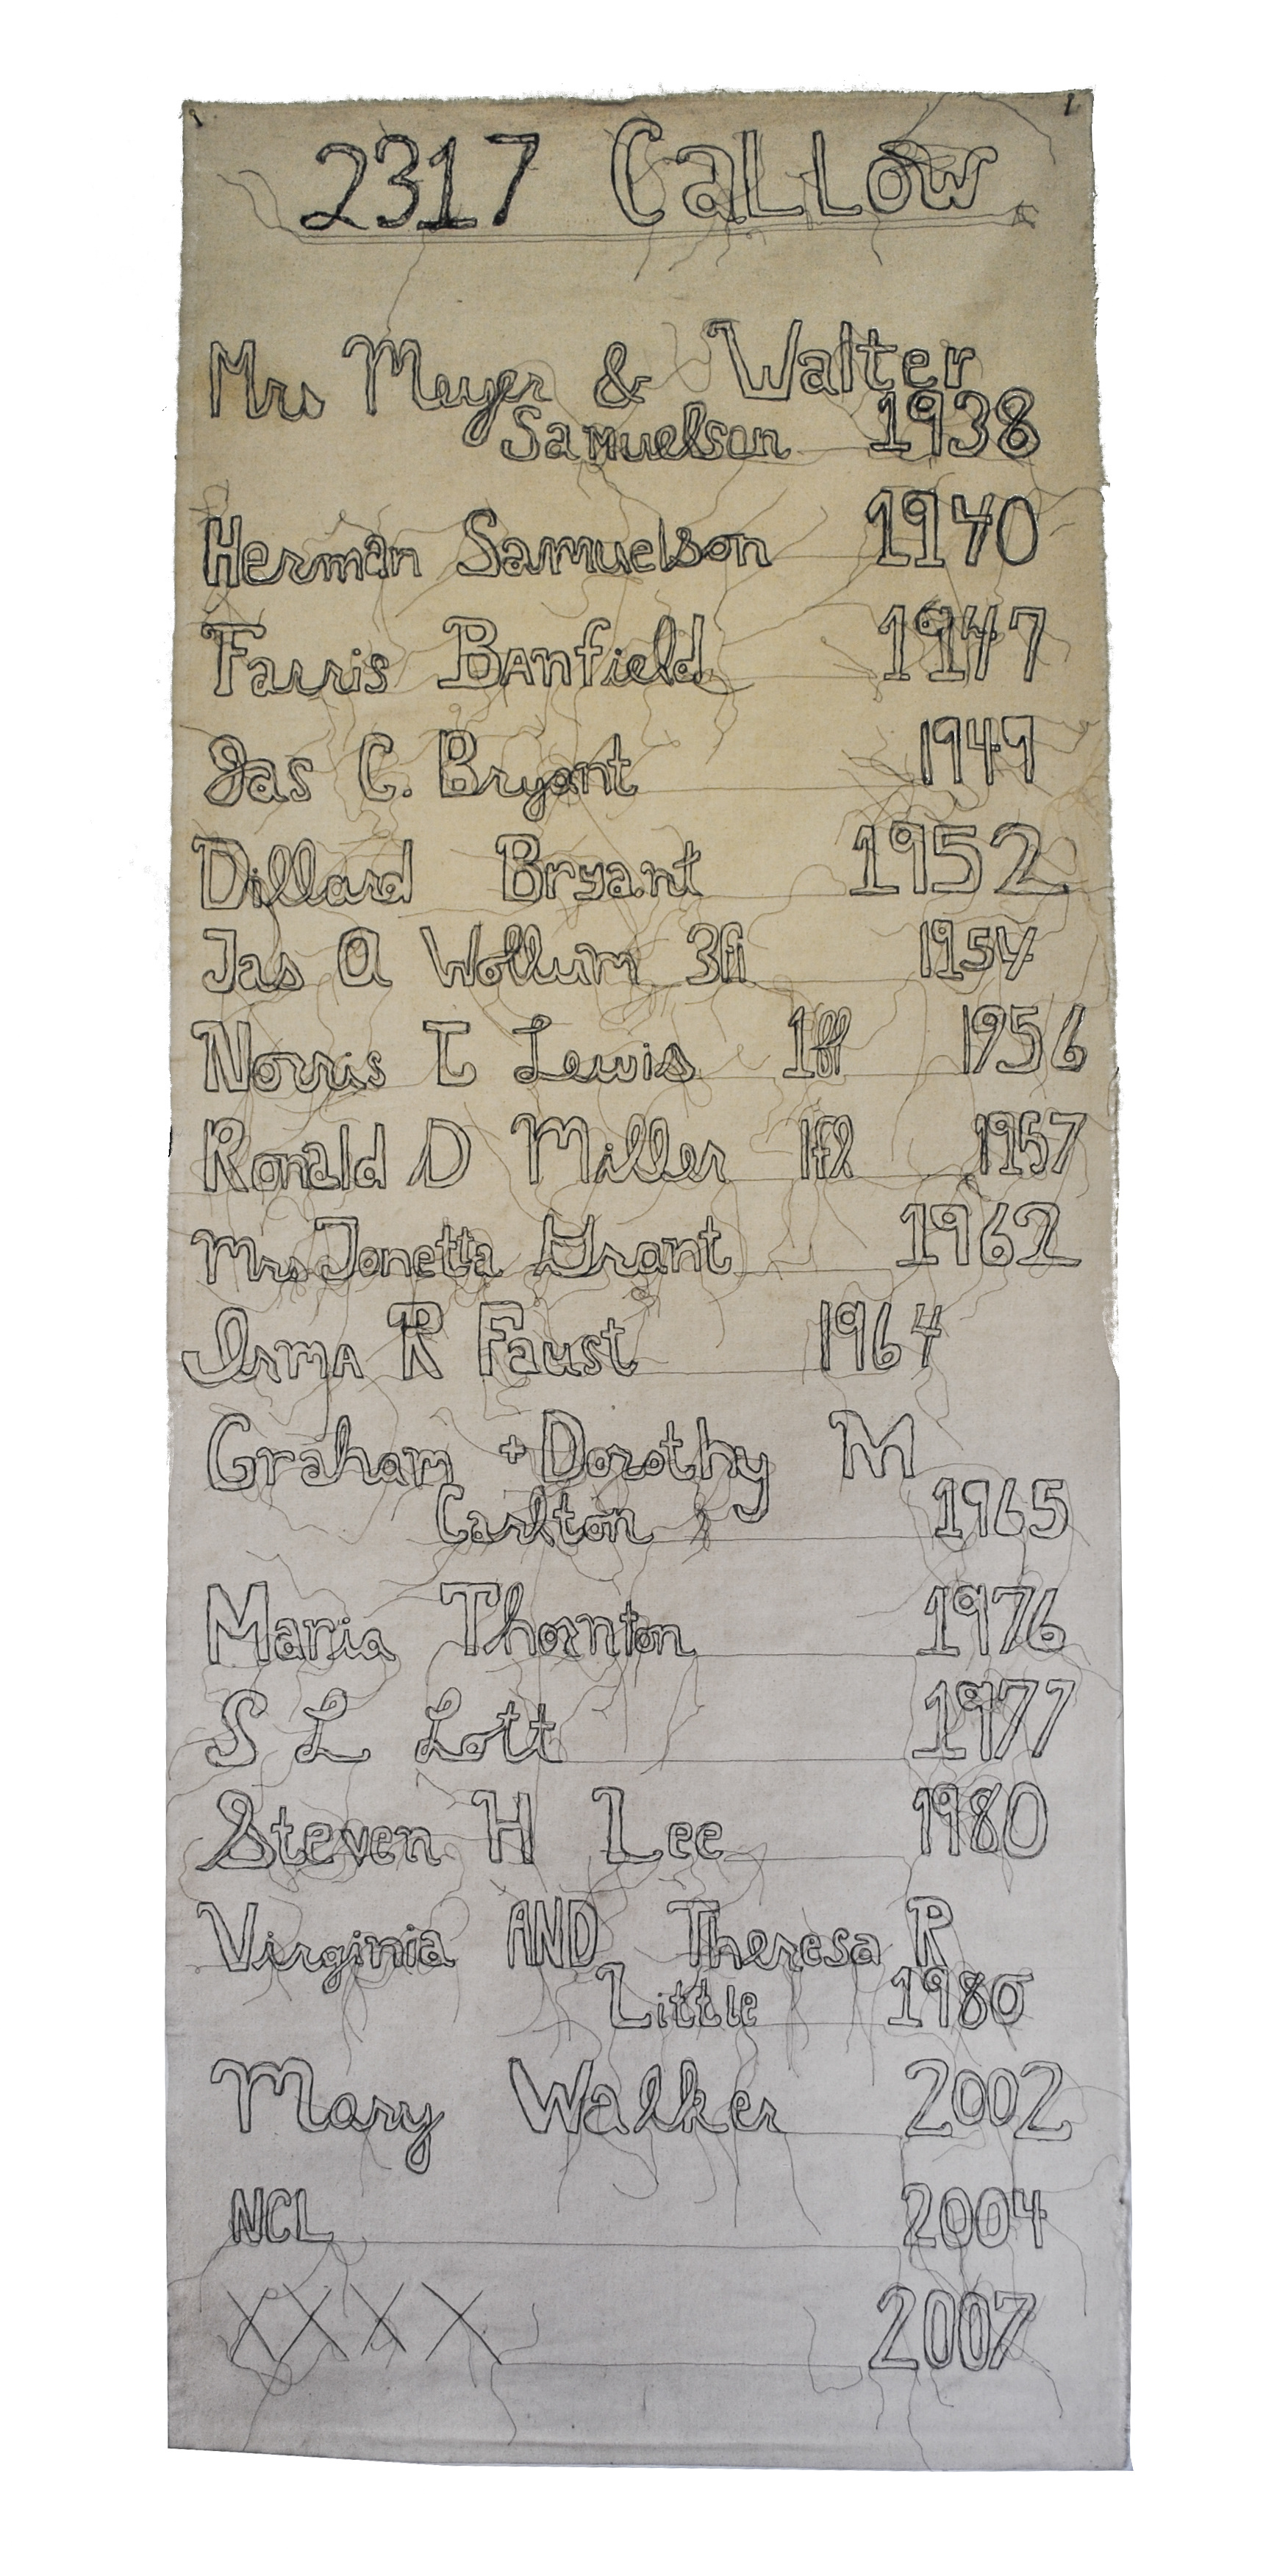 2317 CaLLOW
Mrs Meyer & Walter
Samuelson 1938
Herman Samuelson 1940
Farris BAnfield 1947
Jas C. Bryant 1949
Dillard Bryant 1952
Jas A Wollum 1954
Norris L Lewis 1956
Ronald D Miller 1957
Mrs Jonetta Grant 1962
IrmA R Faust 1964
Graham + Dorothy M
Carlton 1965
Maria Thornton 1976
S L Lott 1977
Steven H Lee 1980
Virginia AND Theresa R
Little 1980
Mary Walker 2002
NCL 2004
XXXX 2007